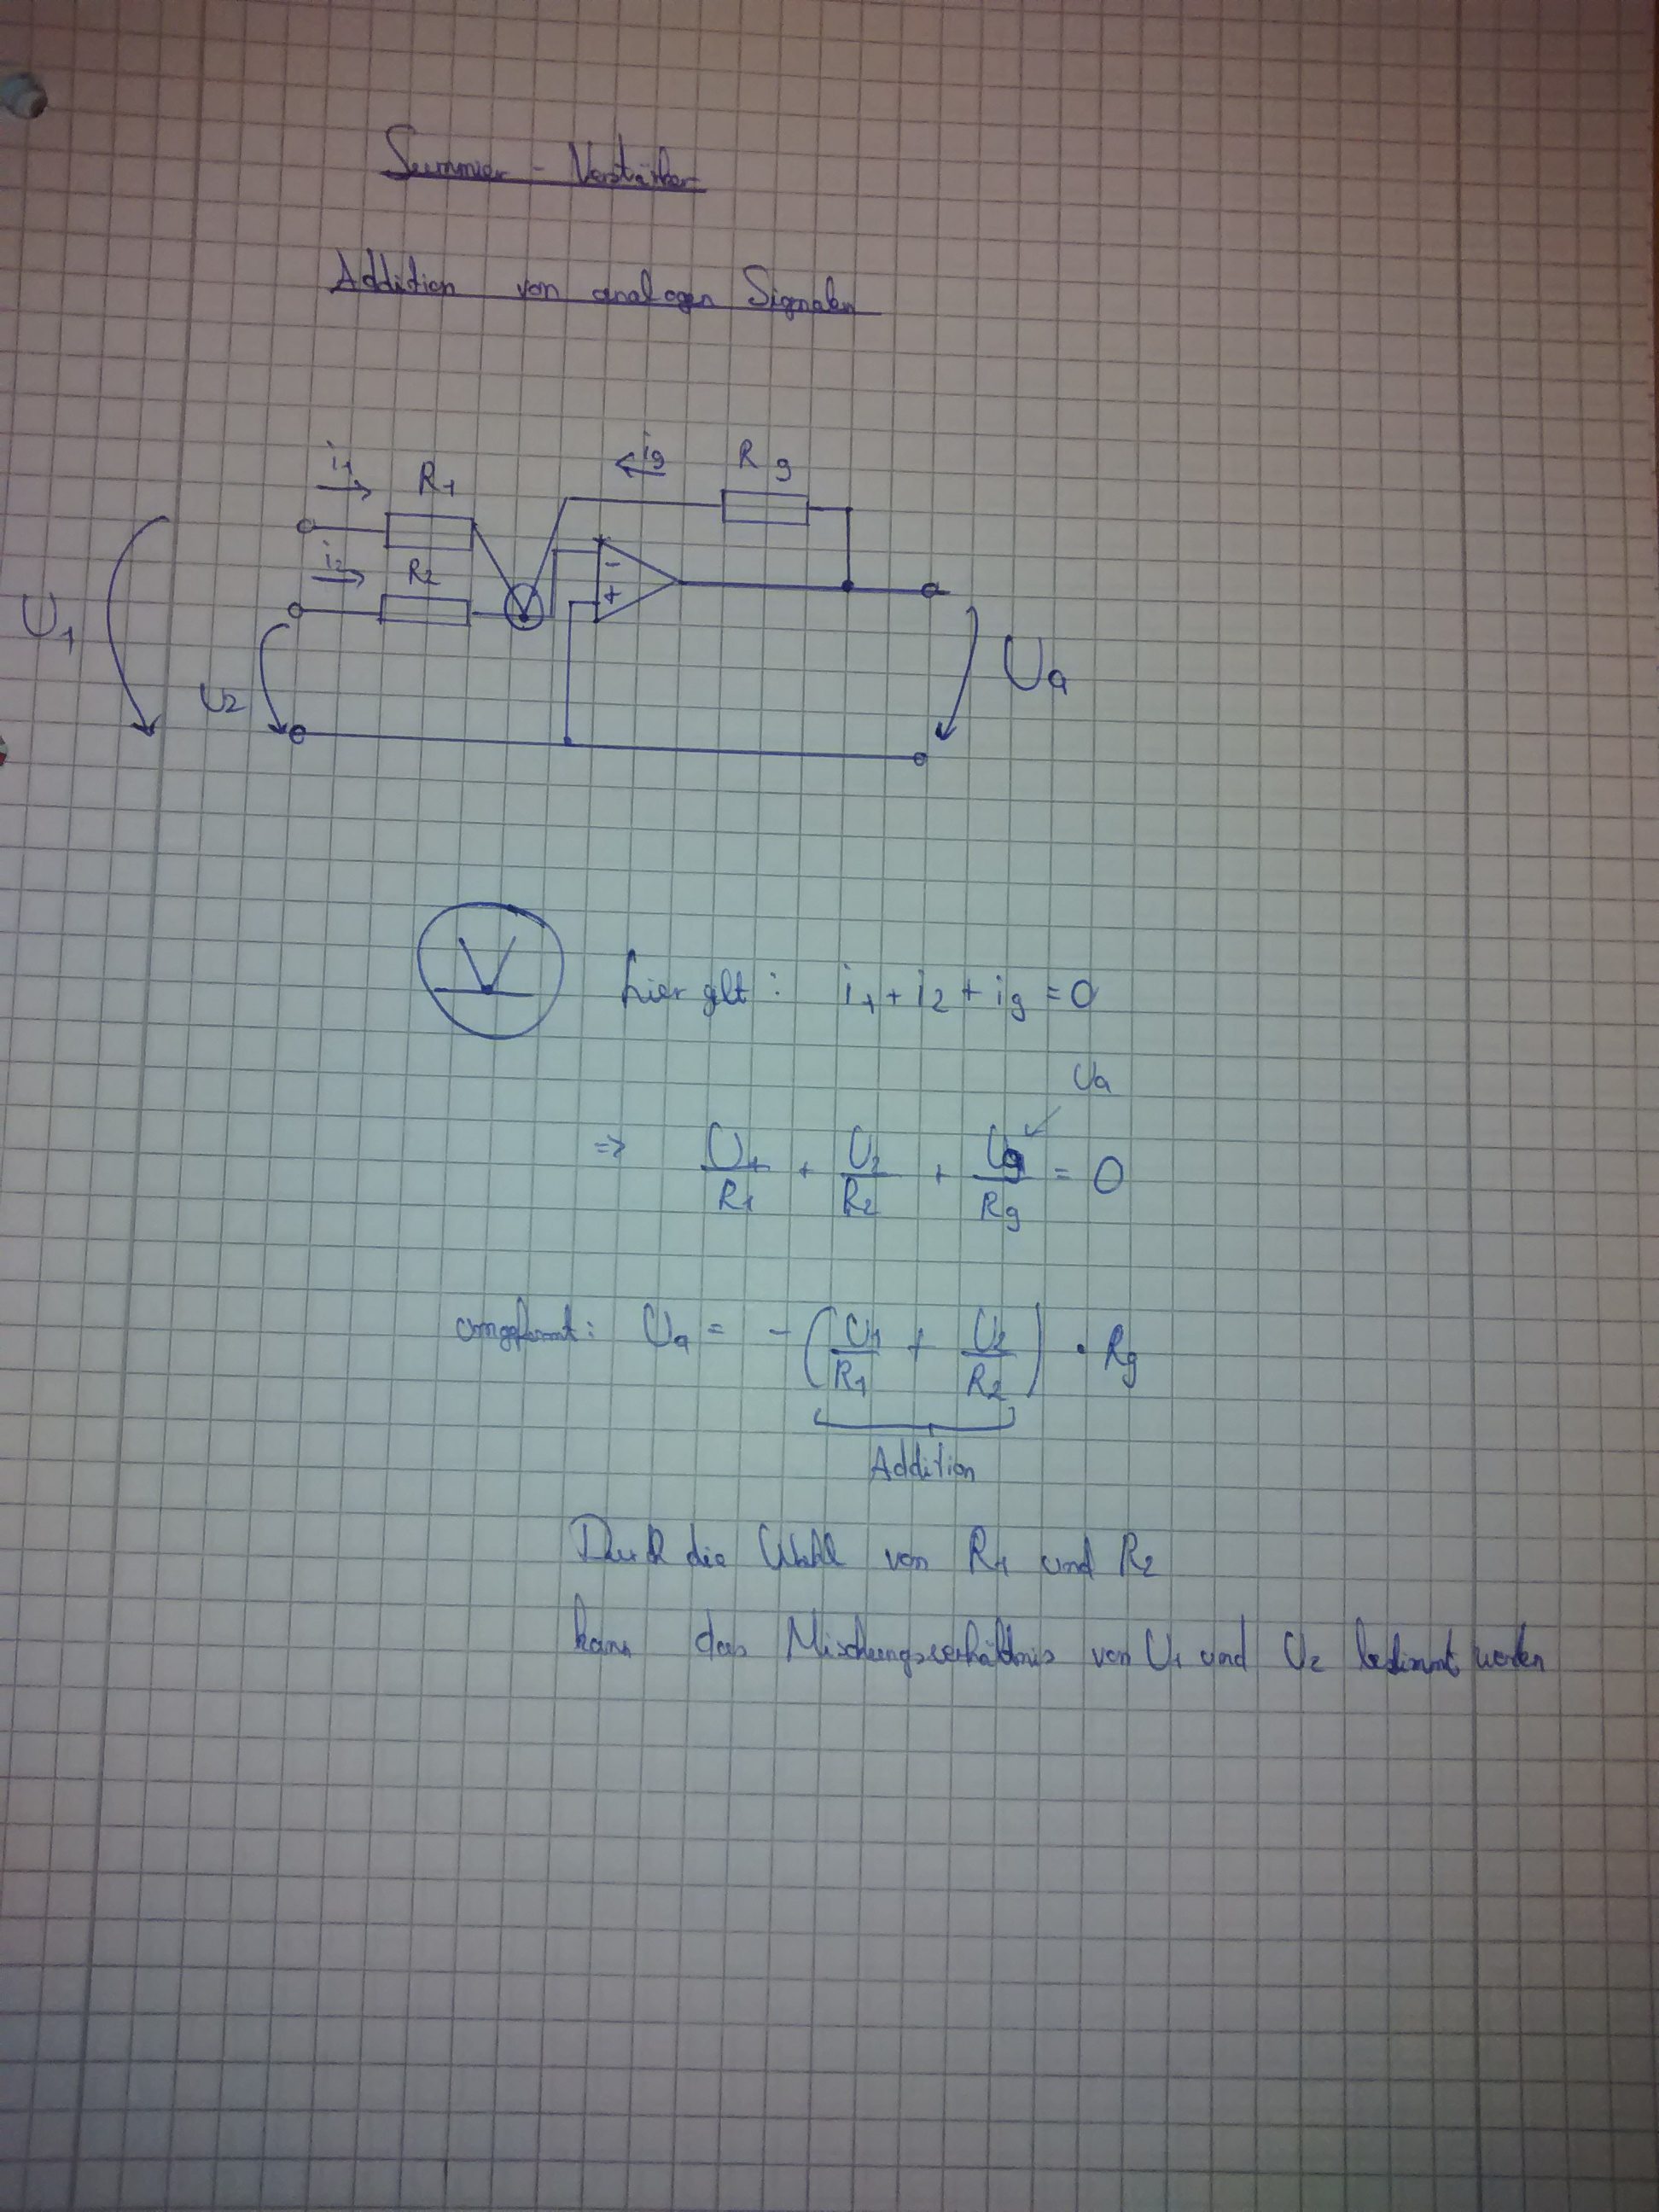 Summier - Verstärker
Addition von analogen Signalen
i1 R1 ig Rg
i2 R2
-
+
U1
U2
Ua
hier gilt: i1 + i2 + ig = 0
Ua
=> U1/R1 + U2/R2 + Ug/Rg = 0
umgeformt: Ua = - (U1/R1 + U2/R2) • Rg
Addition
Durch die Wahl von R1 und R2
kann das Mischungsverhältnis von U1 und U2 bestimmt werden